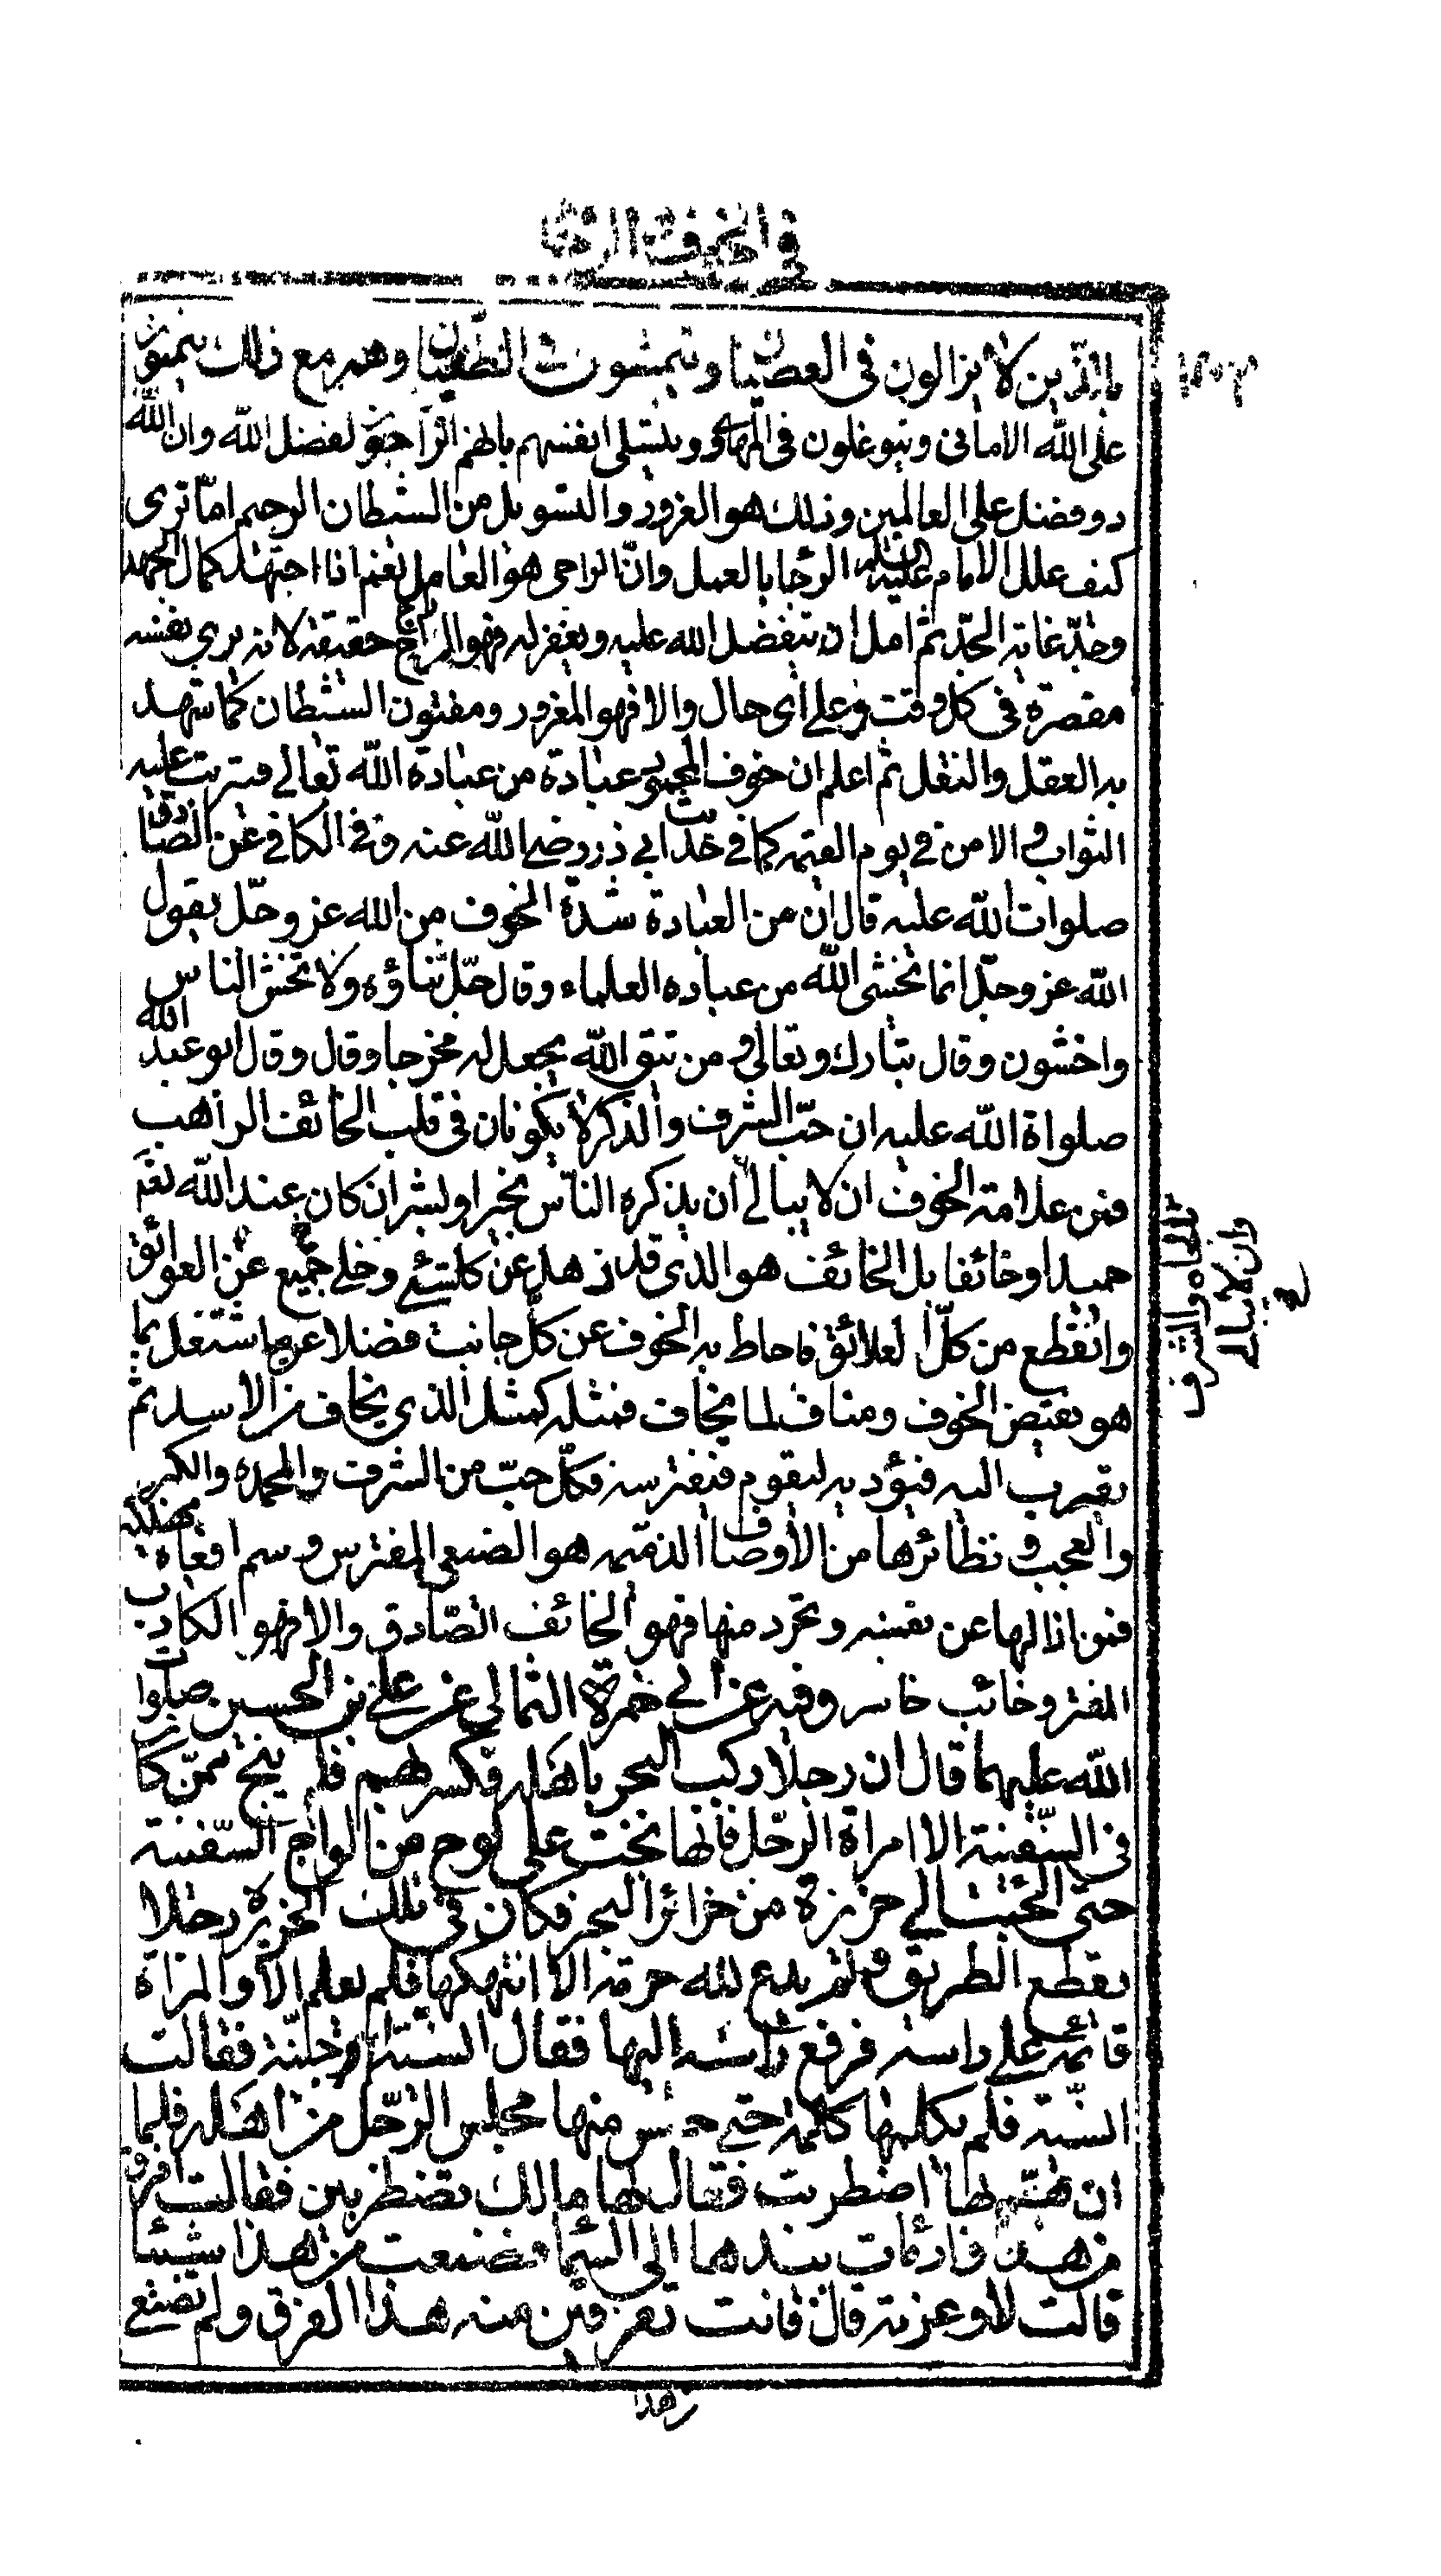 في الخوف الرجا
بالذين لا يزالون في العصيان ويمشون في الطغيان وهم مع ذلك يتمنون
على الله الاماني ويتوغلون في المهاوي ويتسلى انفسهم بانهم الراجون لفضل الله وان الله
ذو فضل على العالمين وذلك هو الغرور والتسويل من الشيطان الرجيم اما ترى
كيف علل الامام عليه السلام الرجا بالعمل وان الراجى هو العامل نعم اذا اجتهد كمال الجهد
وجد غاية الجد ثم امل ان يتفضل الله عليه ويغفر له فهو الراجي حقيقة لانه يرى نفسه
مقصرة في كل وقت وعلى اى حال والا فهو المغرور ومفتون الشيطان كما شهد
به العقل والنقل ثم اعلم ان خوف المحبوب عبادة من عبادة الله تعالى يترتب عليه
الثواب والامن في يوم القيمه كما في حديث ابي ذر رضي الله عنه وفي الكافي عن الصادق
صلوات الله عليه قال ان من العبادة شدة الخوف من الله عز وجل يقول
الله عز وجل انما يخشى الله من عباده العلماء وقال جل ثناؤه ولا تخش الناس
واخشون وقال تبارك وتعالى ومن يتق الله يجعل له مخرجا وقال وقال ابو عبد الله
صلواة الله عليه ان حب الشرف والذكر لا يكونان في قلب الخائف الراهب
فمن علامة الخوف ان لا يبالي ان يذكره الناس بخير او بشر ان كان عند الله نعم
حميدا وخائفا بل الخائف هو الذى قد ذهل عن كلشئ وخلي جميع عن العوائق
وانقطع من كل العلائق فاحاط به الخوف عن كل جانب فضلا عن ما اشتغل بما
هو نقيض الخوف ومناف لما يخاف فمثله كمثل الذى يخاف من الاسد ثم
يقرب اليه فيؤذيه ليقوم فيفترسه فكل حب من الشرف والمحمده والكبر
والعجب ونظائرها من الاوصاف الذميمه هو الضبع المفترس وسم افعاه مهلكه
فمن ازالها عن نفسه وتجرد منها فهو الخائف الصادق والا فهو الكاذب
المفتر وخائب خاسر وفيه عن ابي حمزة الثمالي عن علي بن الحسين صلوات
الله عليهما قال ان رجلا ركب البحر باهله فكسر بهم فلم ينج ممن كان
في السفينة الا امراة الرجل فانها نجت على لوح من الواح السفينة
حتى الجئت الي جزيرة من جزائر البحر فكان في تلك الجزيرة رجلا
يقطع الطريق ولم يدع لله حرمة الا انتهكها فلم يعلم الا والمراة
قائمة على راسه فرفع راسه اليها فقال انسية او جنية فقالت
انسية فلم يكلمها كلمة حتى جلس منها مجلس الرجل من اهله فلما
ان هم بها اضطربت فقال لها مالك تضطربين فقالت افرق
من هذا واومات بيدها الى السما فصنعت من هذا شيئا
قالت لا وعزته قال فانت تفرقين منه هذا الفرق ولم تصنعي
من هذا
الجاه والشرف
وان لا يبالي